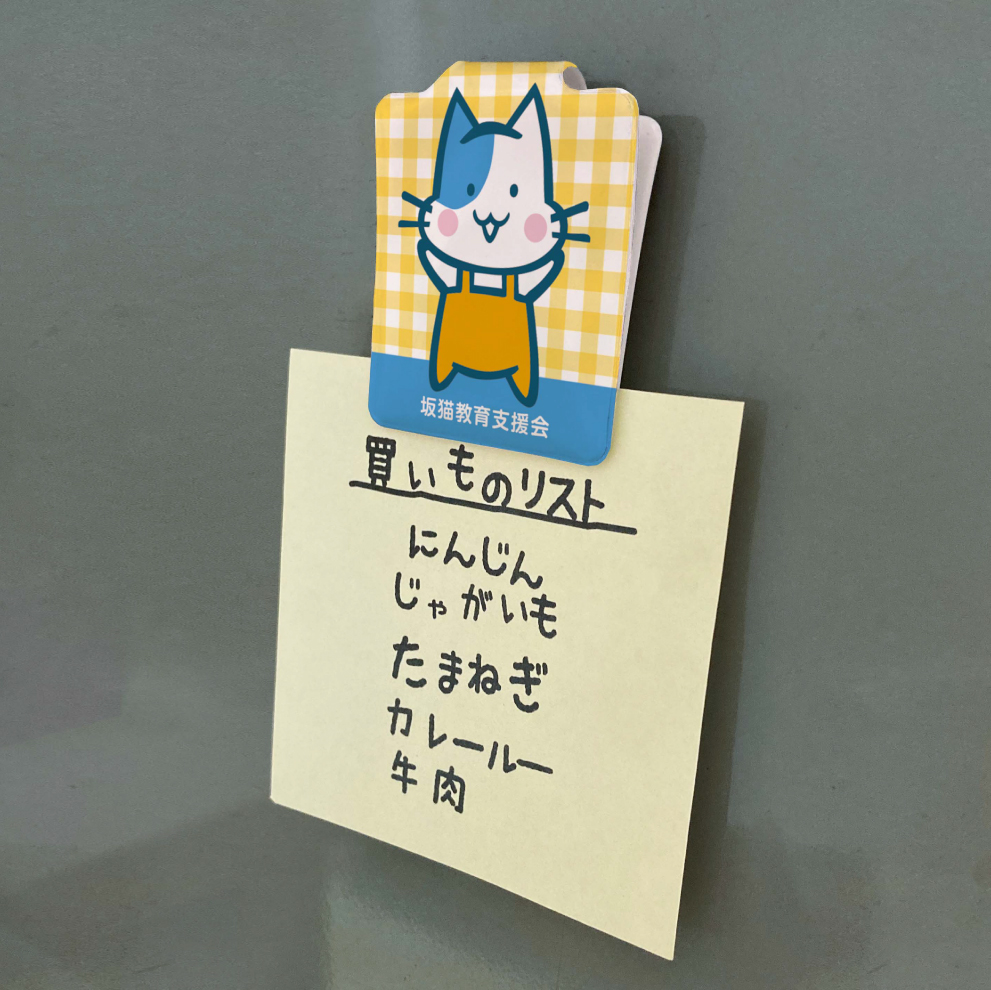 坂猫教育支援会
買いものリスト
にんじん
じゃがいも
たまねぎ
カレールー
牛肉